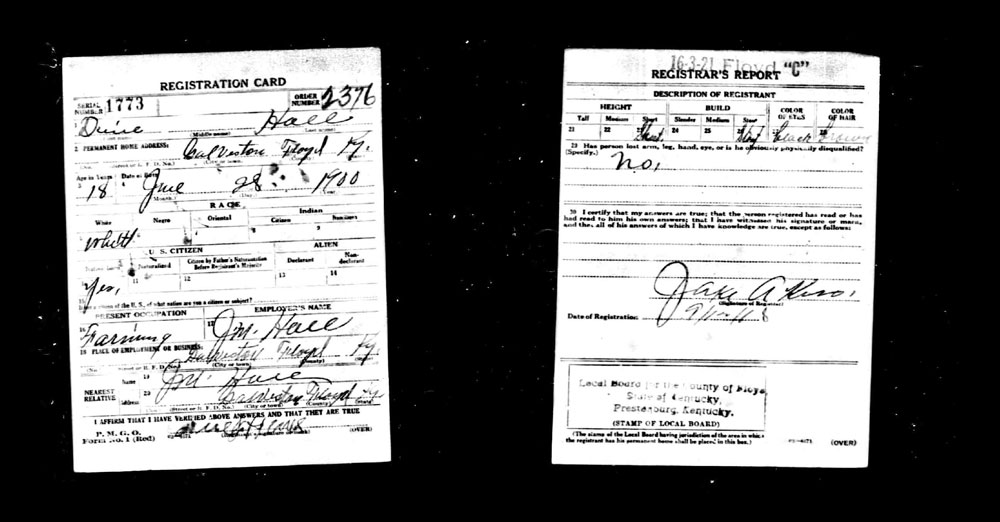 REGISTRATION CARD
SERIAL NUMBER 1773
ORDER NUMBER 2376
1 Hall
(Middle name)
2 PERMANENT HOME ADDRESS:
Galveston Floyd Ky.
(No.) (Street or R. F. D. No.) (City or town)
Age in Years Date of Birth
3 18 4 June 28 1900
(Month.) (Day.)
RACE
White Negro Oriental Indian
Citizen Noncitizen
5 6 7 8 9
White
U. S. CITIZEN ALIEN
Native Born Naturalized Citizen by Father's Naturalization Before Registrant's Majority Declarant Non-declarant
10 11 12 13 14
Yes,
15 If not a citizen of the U. S., of what nation are you a citizen or subject?
PRESENT OCCUPATION EMPLOYER'S NAME
16 Farming 17 J.M. Hall
18 PLACE OF EMPLOYMENT OR BUSINESS:
Galveston Floyd Ky.
(No.) (Street or R. F. D. No.) (City or town) (County)
NEAREST RELATIVE
Name 19 J.M. Hall
Address 20 Galveston Floyd Ky
(No.) (Street or R. F. D. No.) (City or town) (County)
I AFFIRM THAT I HAVE VERIFIED ABOVE ANSWERS AND THAT THEY ARE TRUE
P. M. G. O.
Form No. 1 (Red) (OVER)
16-3-21 Floyd "C"
REGISTRAR'S REPORT
DESCRIPTION OF REGISTRANT
HEIGHT BUILD COLOR OF EYES COLOR OF HAIR
Tall Medium Short Slender Medium Stout
21 22 23 Short 24 25 26 Stout 27 black 28 brown
29 Has person lost arm, leg, hand, eye, or is he obviously physically disqualified?
(Specify.) No,
30 I certify that my answers are true; that the person registered has read or has
had read to him his own answers; that I have witnessed his signature or mark,
and that all of his answers of which I have knowledge are true, except as follows:
(Signature of Registrar)
Date of Registration
Local Board for the County of Floyd,
State of Kentucky,
Prestonsburg, Kentucky.
(STAMP OF LOCAL BOARD)
(The stamp of the Local Board having jurisdiction of the area in which
the registrant has his permanent home shall be placed in this box.)
(OVER)